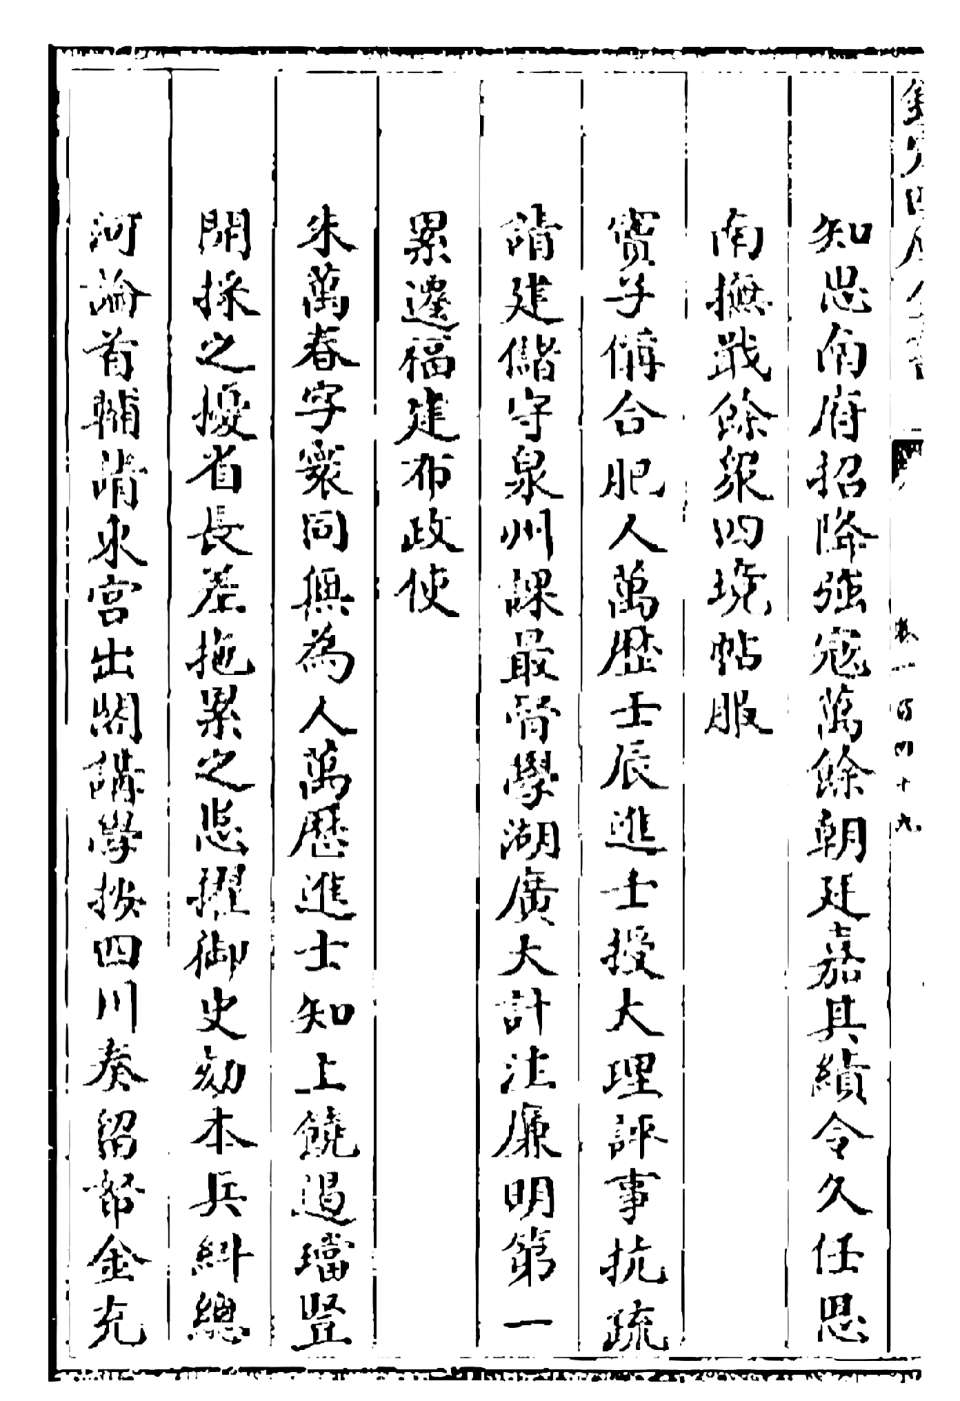 欽定四庫全書
卷一百四十九
知思南府招降強寇萬餘朝廷嘉其績令久任思
南撫戢餘衆四境帖服
竇子偁合肥人萬歴壬辰進士授大理評事抗疏
請建儲守泉州課最督學湖廣大計注廉明第一
累遷福建布政使
朱萬春字衆同無為人萬歴進士知上饒遏璫豎
開採之擾省長差拖累之患擢御史劾本兵糾總
河論首輔請永宫出閣講學按四川奏留帑金充